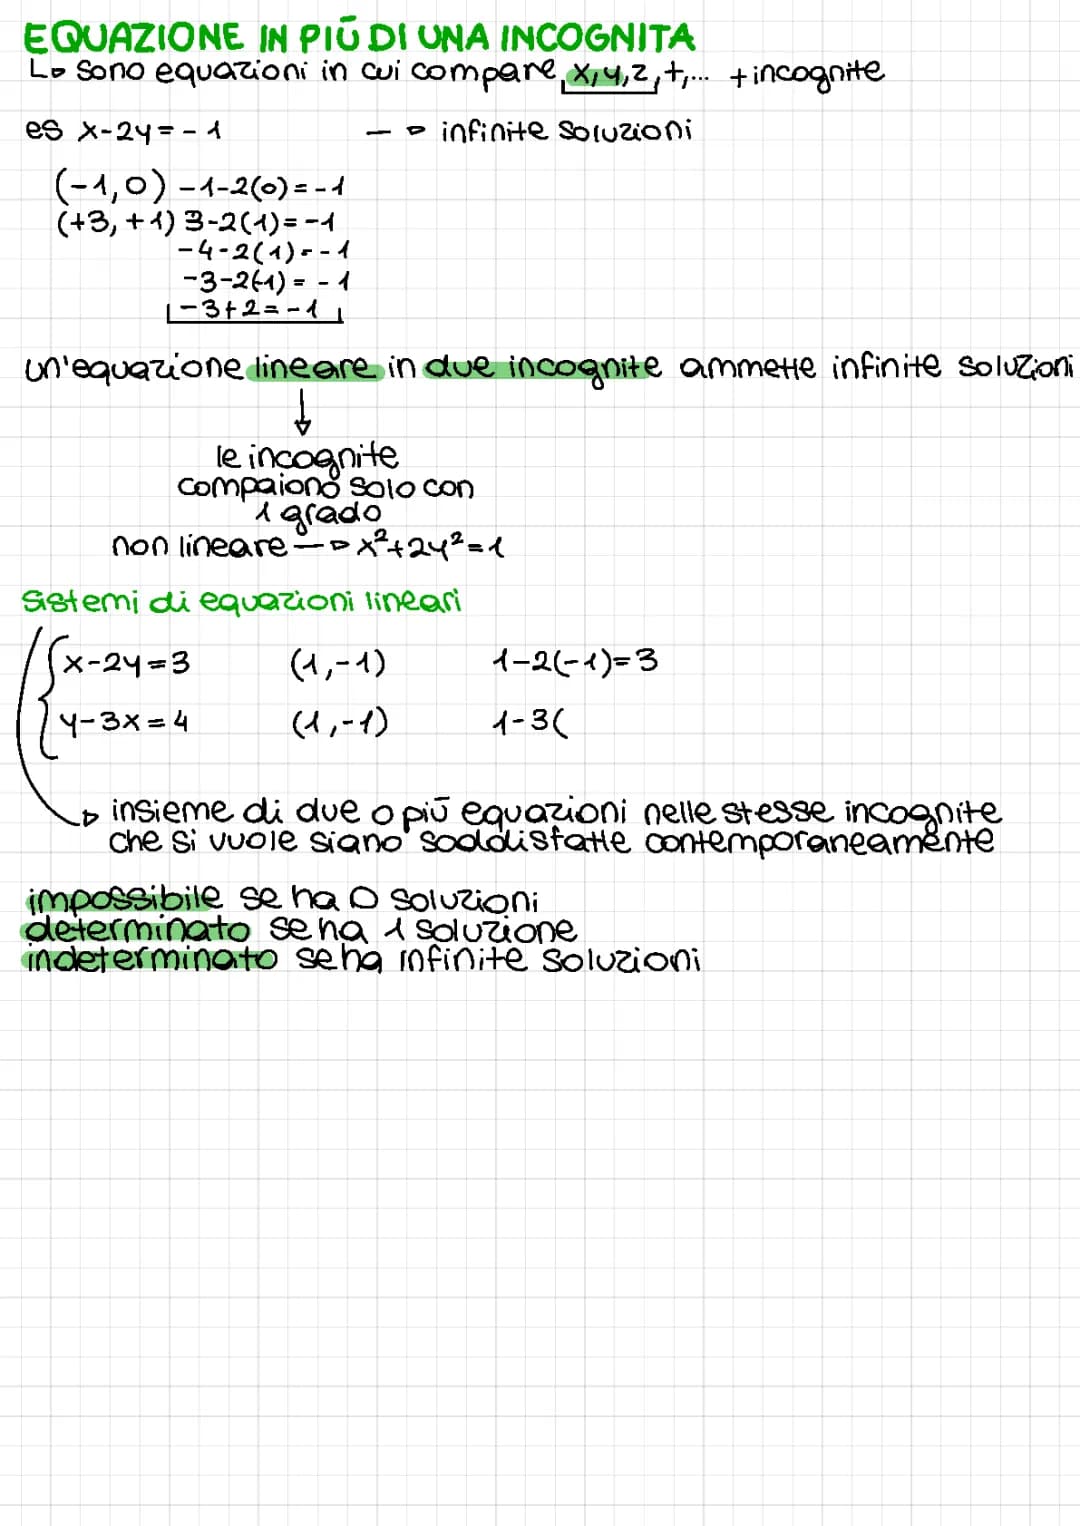 EQUAZIONE IN PIÚ DI UNA INCOGNITA
Sono equazioni in cui compare x,y,z,t,... + incognite
es x-2y=-1 → infinite soluzioni
(-1,0) -1-2(0)=-1
(+3,+1) 3-2(1)=-1
-4-2(1)=-1
-3-2(-1)=-1
-3+2=-1
un'equazione lineare in due incognite ammette infinite soluzioni
le incognite
compaiono solo con
1 grado
non lineare → x²+2y²=1
Sistemi di equazioni lineari
x-2y=3 (1,-1) 1-2(-1)=3
y-3x=4 (1,-1) 1-3(
insieme di due o piú equazioni nelle stesse incognite
che si vuole siano soddisfatte contemporaneamente
impossibile se ha 0 soluzioni
determinato se ha 1 soluzione
indeterminato se ha infinite soluzioni